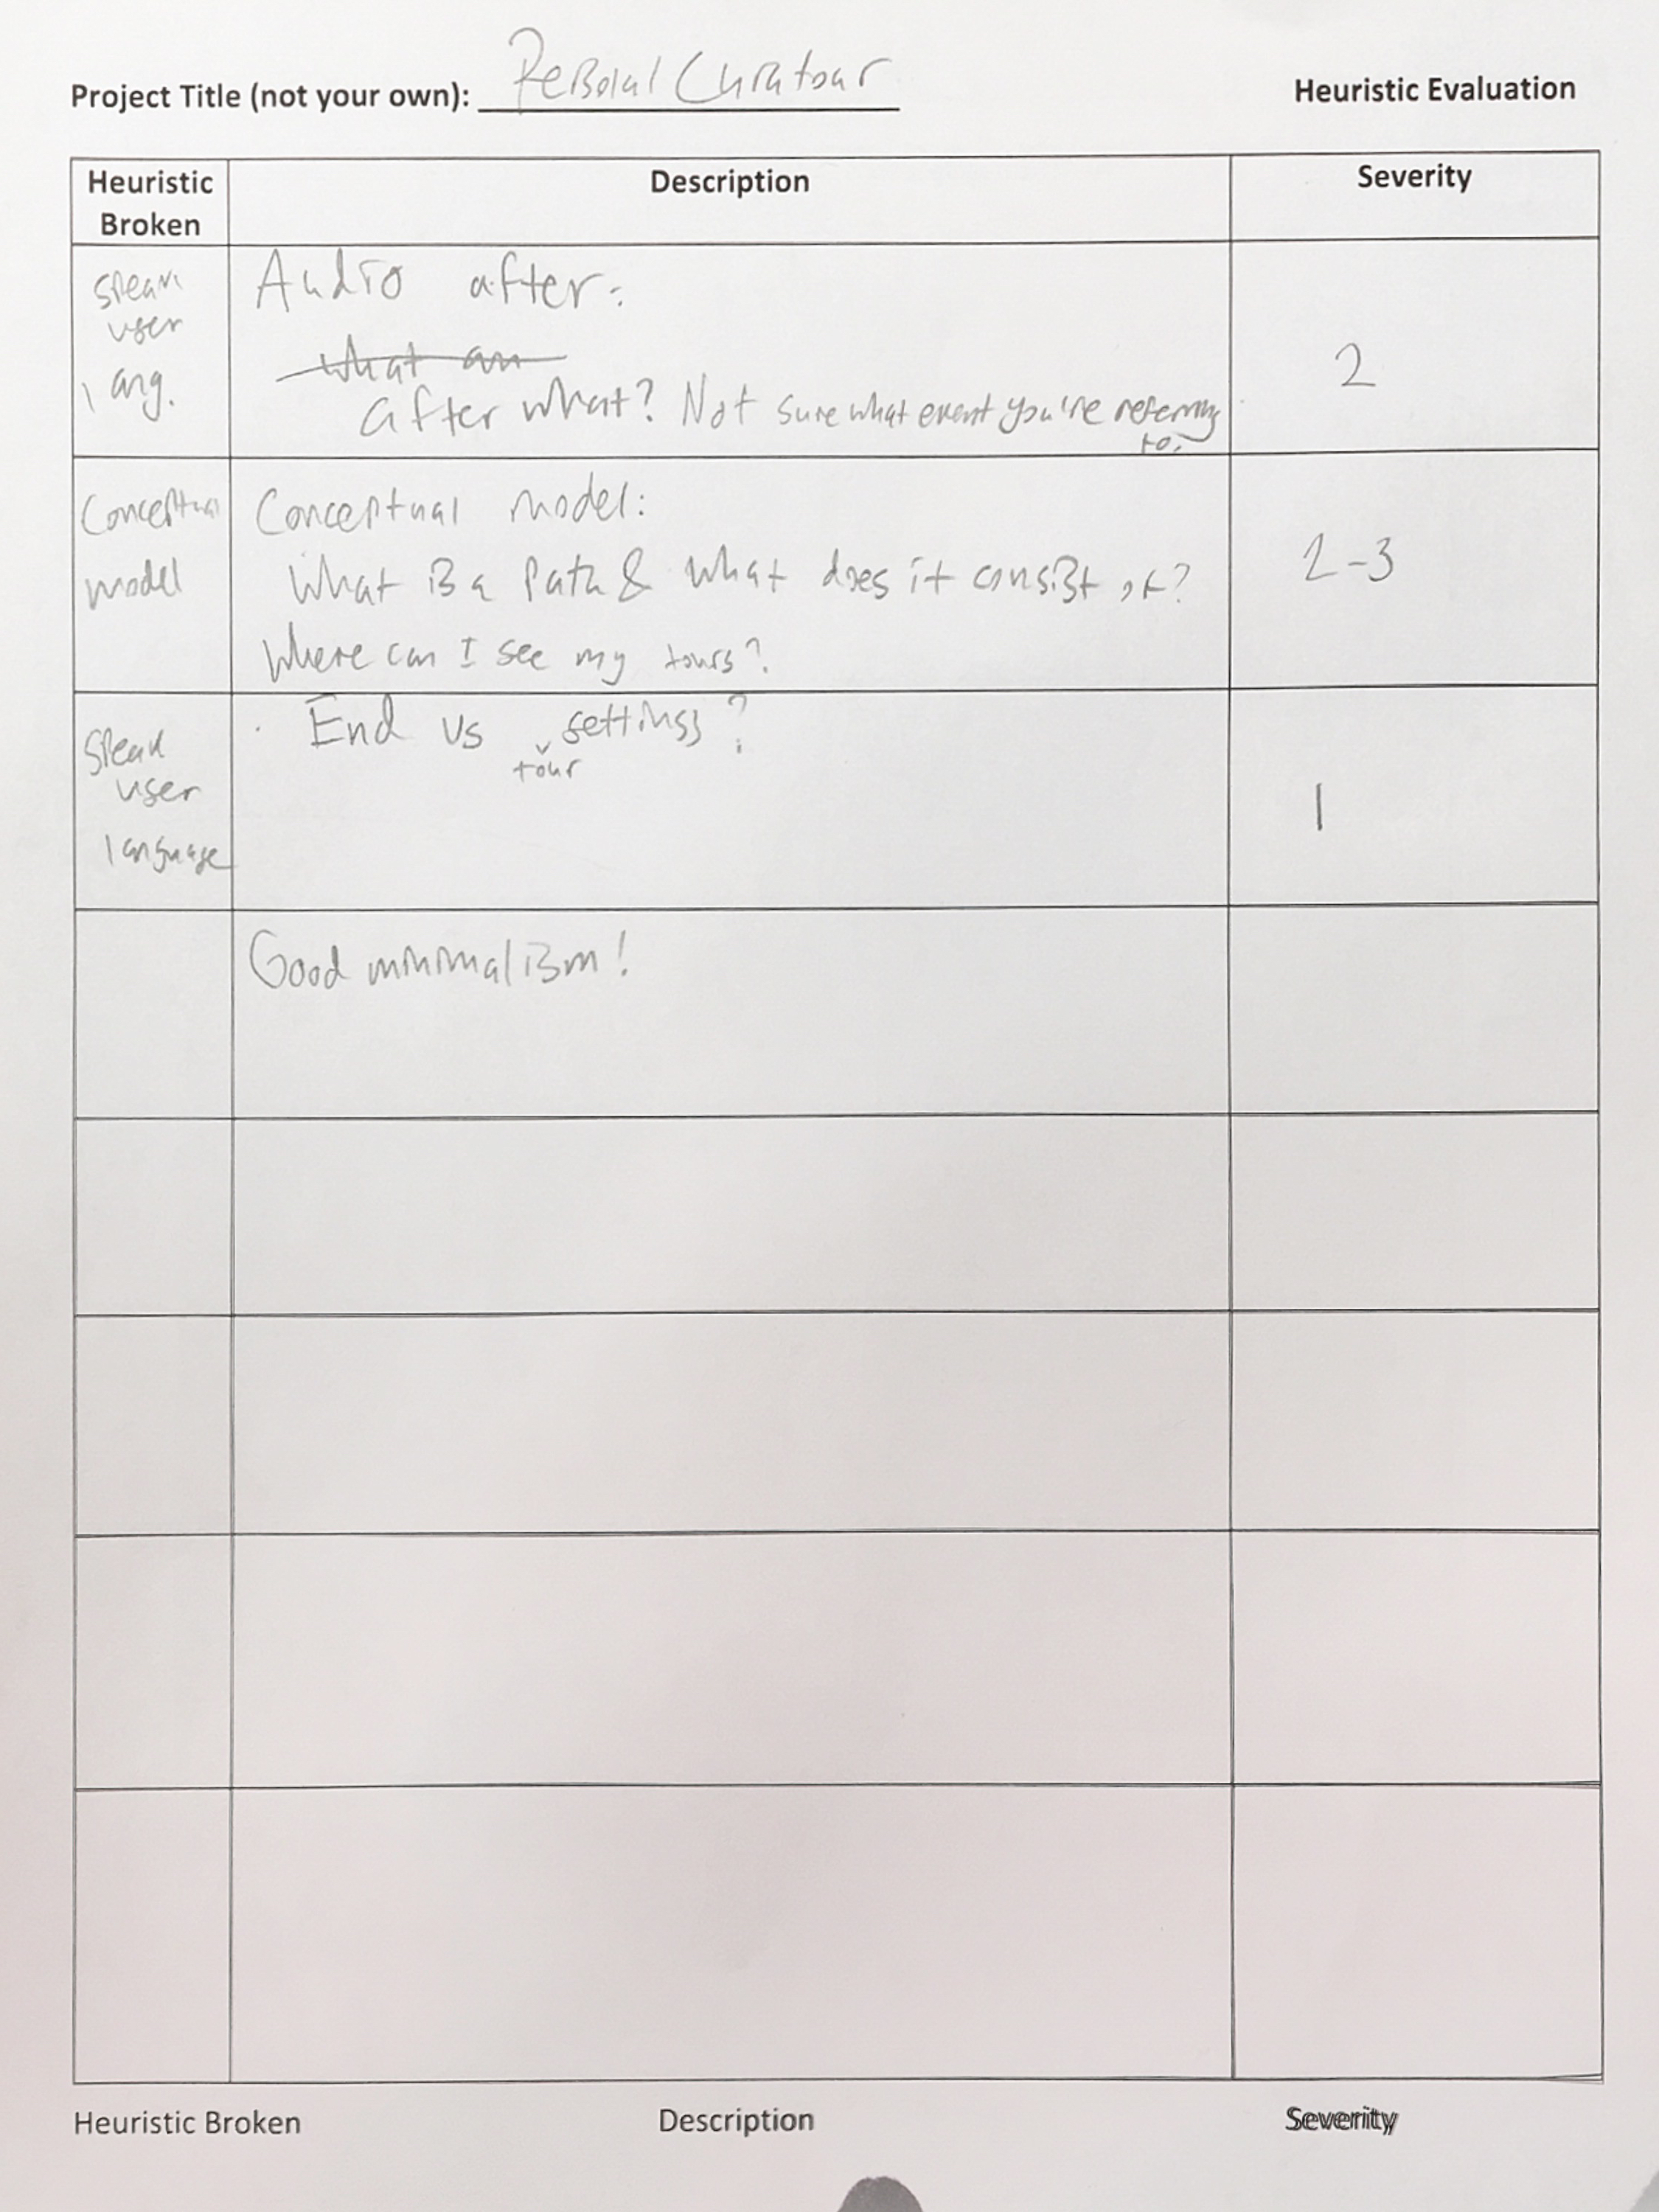 Project Title (not your own): Personal Curatour
Heuristic Evaluation
Heuristic Broken
Description
Severity
Speak
user
lang.
Audio after:
what an
after what? Not sure what event you're referring
to.
2
Conceptual
model
Conceptual model:
What is a path & what does it consist of?
Where can I see my tours?
2-3
Speak
user
language
End vs tour settings?
1
Good minimalism!
Heuristic Broken
Description
Severity